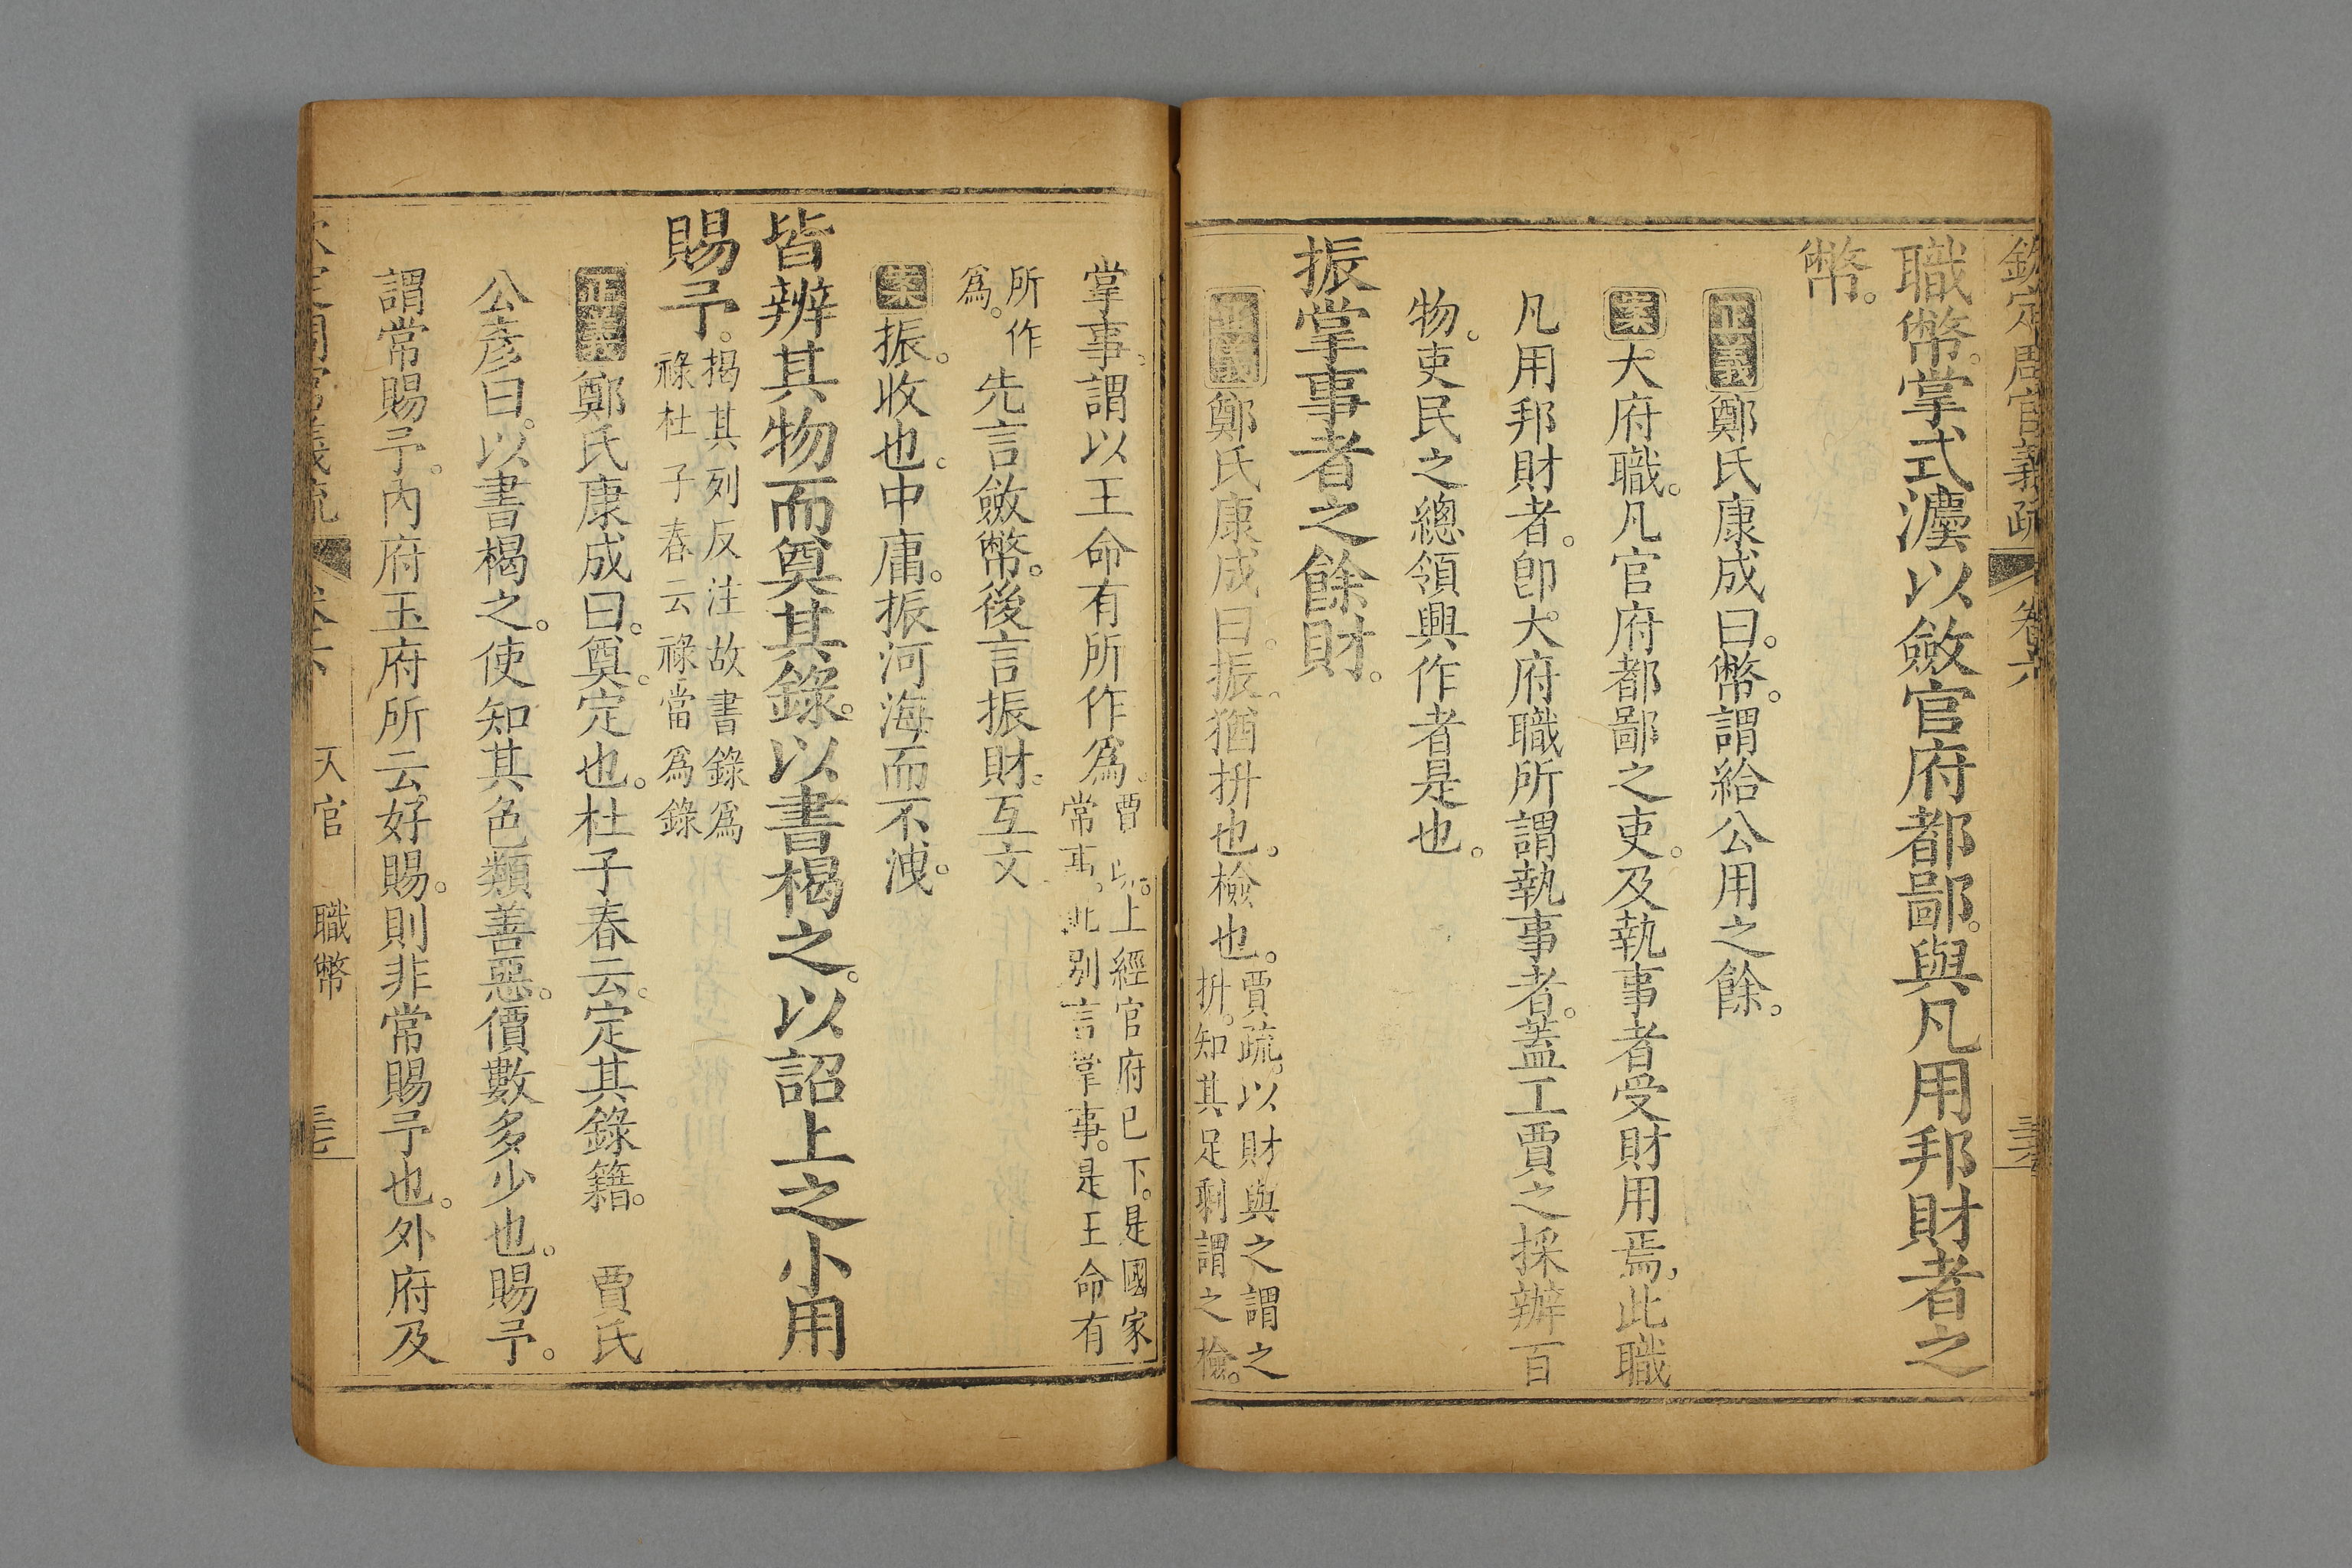 欽定周官義疏 卷六
職幣。掌式灋以斂官府都鄙。與凡用邦財者之
幣。
正義鄭氏康成曰。幣。謂給公用之餘。
案大府職。凡官府都鄙之吏。及執事者受財用焉。此職
凡用邦財者。卽大府職所謂執事者。蓋工賈之採辦百
物。吏民之總領興作者是也。
振掌事者之餘財。
正義鄭氏康成曰。振。猶拼也。檢也。
賈疏。以財與之謂之
拼。知其足剩謂之檢。
掌事。謂以王命有所作爲。
上經官府已下。是國家
常事。此別言掌事。是王命有
所作
爲。
先言斂幣。後言振財。互文
案振。收也。中庸。振河海而不洩。
皆辨其物而奠其錄。以書楬之。以詔上之小用
賜予。
楬其列反注故書錄爲
祿杜子春云祿當爲錄
正義鄭氏康成曰。奠。定也。杜子春云。定其錄籍。 賈氏
公彥曰。以書楬之。使知其色類善惡。價數多少也。賜予。
謂常賜予。內府玉府所云好賜。則非常賜予也。外府及
天官 職幣